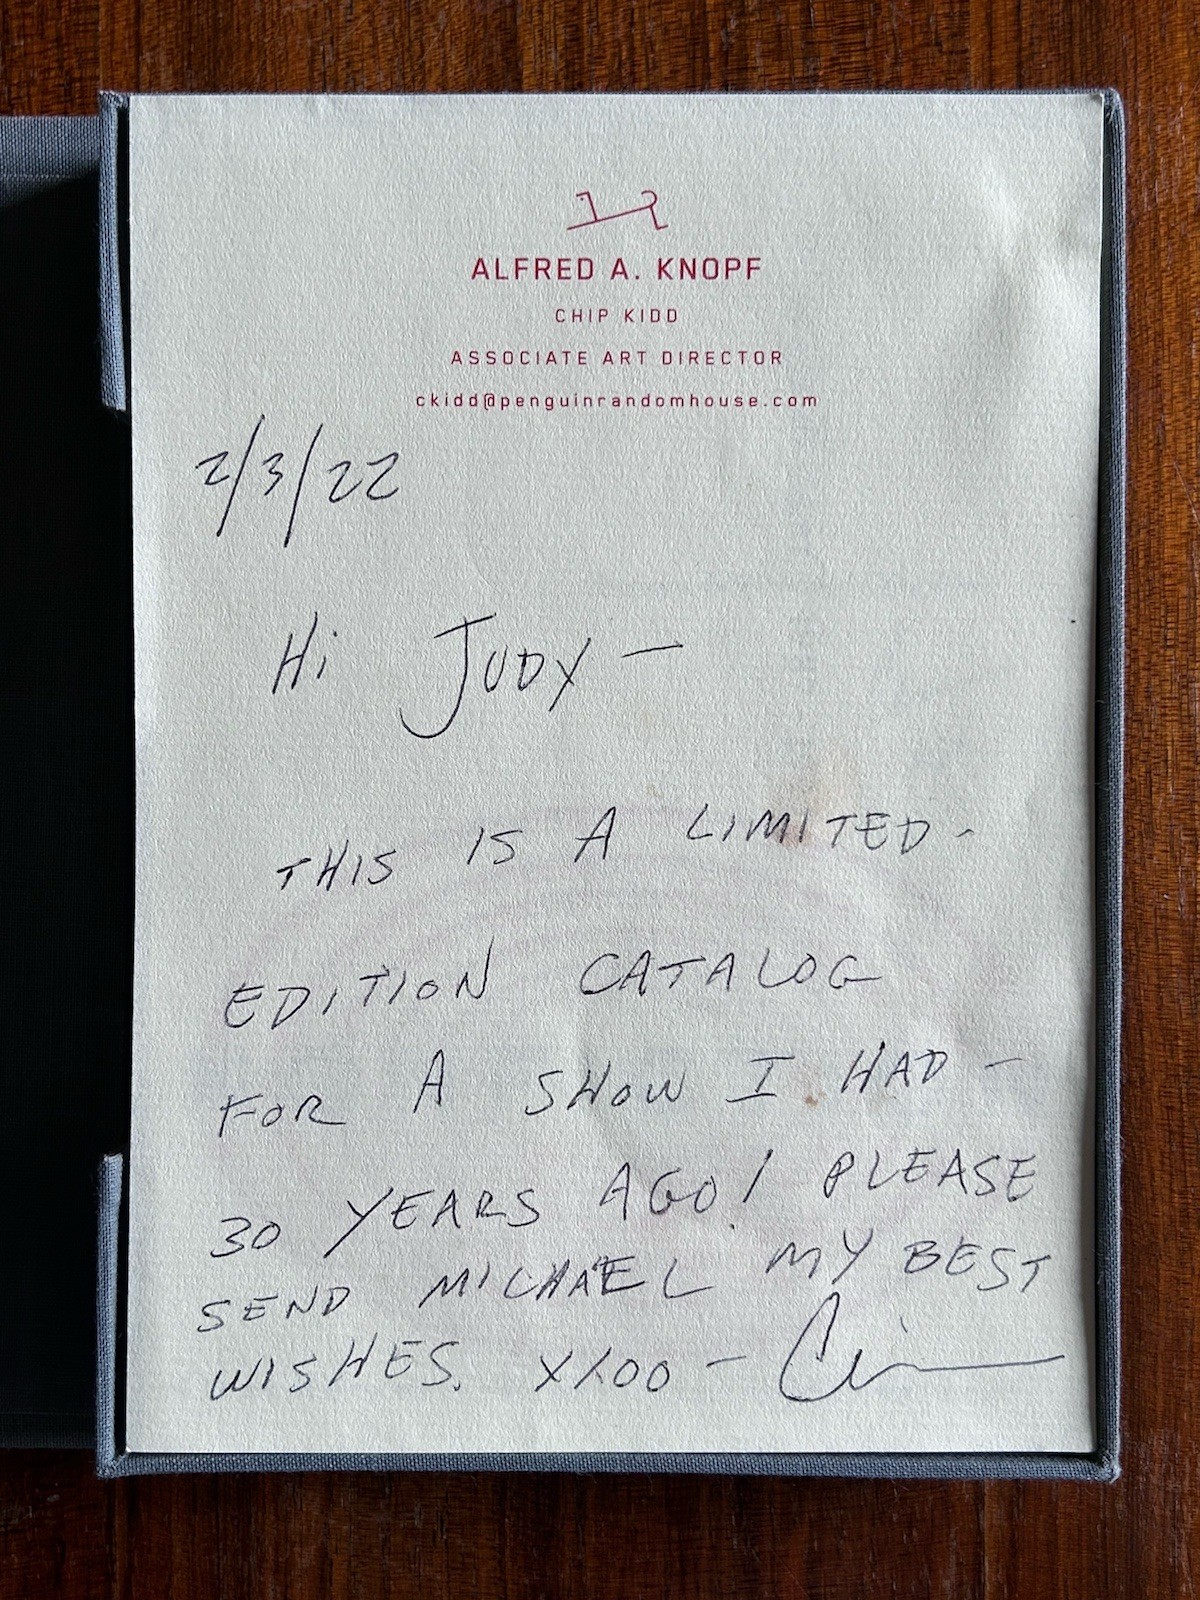 ALFRED A. KNOPF
CHIP KIDD
ASSOCIATE ART DIRECTOR
ckidd@penguinrandomhouse.com
2/3/22
Hi JUDY —
THIS IS A LIMITED-
EDITION CATALOG
FOR A SHOW I HAD —
30 YEARS AGO! PLEASE
SEND MICHAEL MY BEST
WISHES. XXOO —